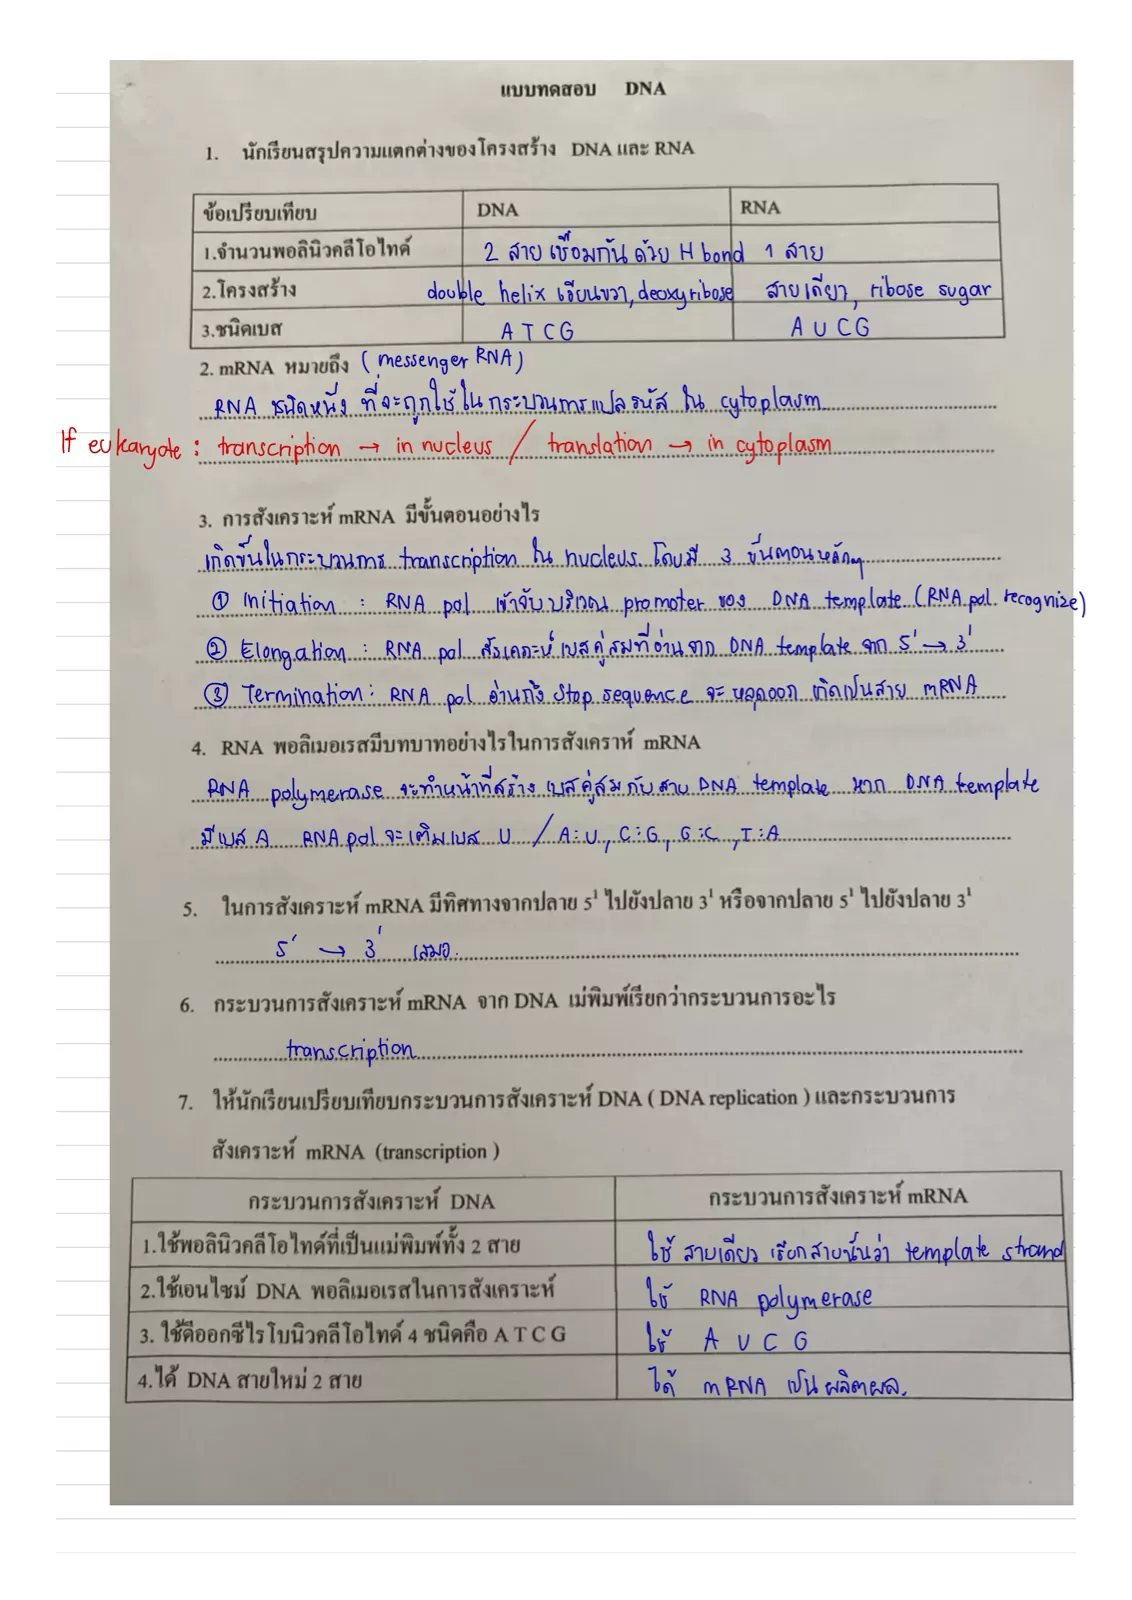 แบบทดสอบ DNA
1. นักเรียนสรุปความแตกต่างของโครงสร้าง DNA และ RNA
ข้อเปรียบเทียบ DNA RNA
1.จำนวนพอลินิวคลีโอไทด์ 2 สาย เชื่อมกัน ด้วย H bond 1 สาย
2.โครงสร้าง double helix เวียนขวา, deoxyribose สายเดียว, ribose sugar
3.ชนิดเบส A T C G A U C G
2. mRNA หมายถึง (messenger RNA)
RNA ชนิดหนึ่ง ที่จะถูกใช้ใน กระบวนการแปลรหัส ใน cytoplasm
If eukaryote : transcription → in nucleus / translation → in cytoplasm
3. การสังเคราะห์ mRNA มีขั้นตอนอย่างไร
เกิดขึ้นในกระบวนการ transcription ใน nucleus โดยมี 3 ขั้นตอนหลักๆ
① Initiation : RNA pol เข้าจับบริเวณ promoter ของ DNA template (RNA pol. recognize)
② Elongation : RNA pol สังเคราะห์ เบสคู่สมที่อ่านจาก DNA template จาก 5' → 3'
③ Termination : RNA pol อ่านถึง Stop sequence จะ หลุดออก เกิดเป็นสาย mRNA
4. RNA พอลิเมอเรสมีบทบาทอย่างไรในการสังเคราห์ mRNA
RNA polymerase จะทำหน้าที่สร้าง เบสคู่สม กับ สาย DNA template หาก DNA template
มีเบส A RNA pol จะเติมเบส U / A:U, C:G, G:C, T:A
5. ในการสังเคราะห์ mRNA มีทิศทางจากปลาย 5' ไปยังปลาย 3' หรือจากปลาย 5' ไปยังปลาย 3'
5' → 3' เสมอ.
6. กระบวนการสังเคราะห์ mRNA จาก DNA เม่พิมพ์เรียกว่ากระบวนการอะไร
transcription
7. ให้นักเรียนเปรียบเทียบกระบวนการสังเคราะห์ DNA ( DNA replication ) และกระบวนการ
สังเคราะห์ mRNA (transcription )
กระบวนการสังเคราะห์ DNA กระบวนการสังเคราะห์ mRNA
1.ใช้พอลินิวคลีโอไทด์ที่เป็นแม่พิมพ์ทั้ง 2 สาย ใช้ สายเดียว เรียกสายนั้นว่า template strand
2.ใช้เอนไซม์ DNA พอลิเมอเรสในการสังเคราะห์ ใช้ RNA polymerase
3. ใช้ดีออกซีไรโบนิวคลีโอไทด์ 4 ชนิดคือ A T C G ใช้ A U C G
4.ได้ DNA สายใหม่ 2 สาย ได้ mRNA เป็น ผลิตผล.